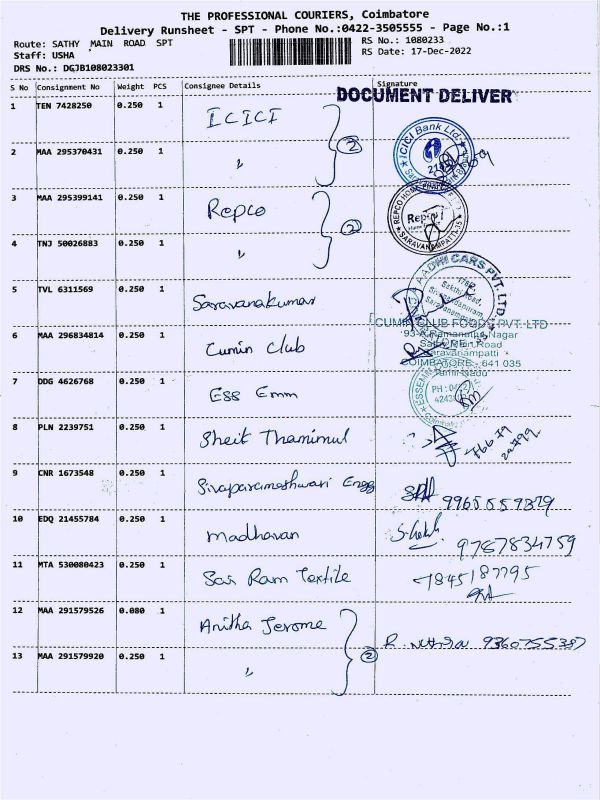 THE PROFESSIONAL COURIERS, Coimbatore
Delivery Runsheet - SPT - Phone No.:0422-3505555 - Page No.:1
Route: SATHY MAIN ROAD SPT
RS No.: 1080233
Staff: USHA
RS Date: 17-Dec-2022
DRS No.: DGJB108023301
S No Consignment No Weight PCS Consignee Details Signature
DOCUMENT DELIVER
1 TEN 7428250 0.250 1 ICICI
2 MAA 295370431 0.250 1 〃 2
ICICI Bank Ltd.
3 MAA 295399141 0.250 1 Repco
REPCO HOME
Repco
SARAVANAMPATTI
4 TNJ 50026883 0.250 1 〃 2
AADHI CARS PVT. LTD
Sakthi Road,
5 TVL 6311569 0.250 1 Saravanakumar
CUMIN CLUB FOODS PVT. LTD
6 MAA 296834814 0.250 1 Cumin Club
Sathy Main Road
Saravanampatti
COIMBATORE - 641 035
Tamil Nadu
7 DDG 4626768 0.250 1 Ess Emm
8 PLN 2239751 0.250 1 Sheik Thamimul
9 CNR 1673548 0.250 1 Sivaparameshwari Engg
10 EDQ 21455784 0.250 1 Madhavan 9787834759
11 MTA 530080423 0.250 1 Sai Ram Textile 7845187795
12 MAA 291579526 0.080 1 Anitha Jerome
13 MAA 291579920 0.250 1 〃 2